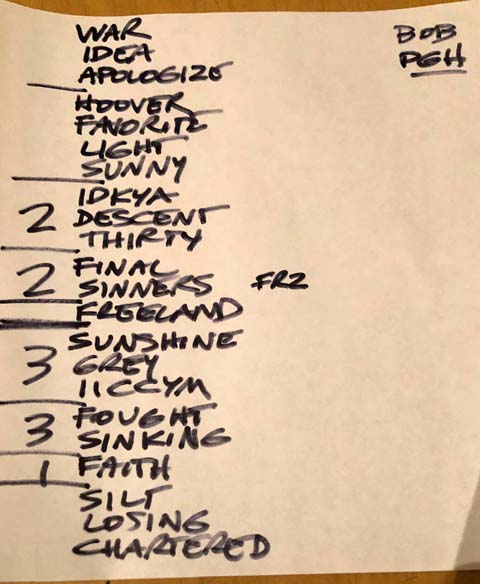 WAR
IDEA
APOLOGIZE
HOOVER
FAVORITE
LIGHT
SUNNY
IDKYA
2 DESCENT
THIRTY
FINAL
2 SINNERS FRZ
FREELAND
SUNSHINE
3 GREY
IICCYM
FOUGHT
3 SINKING
1 FAITH
SILT
LOSING
CHARTERED
BOB
PGH